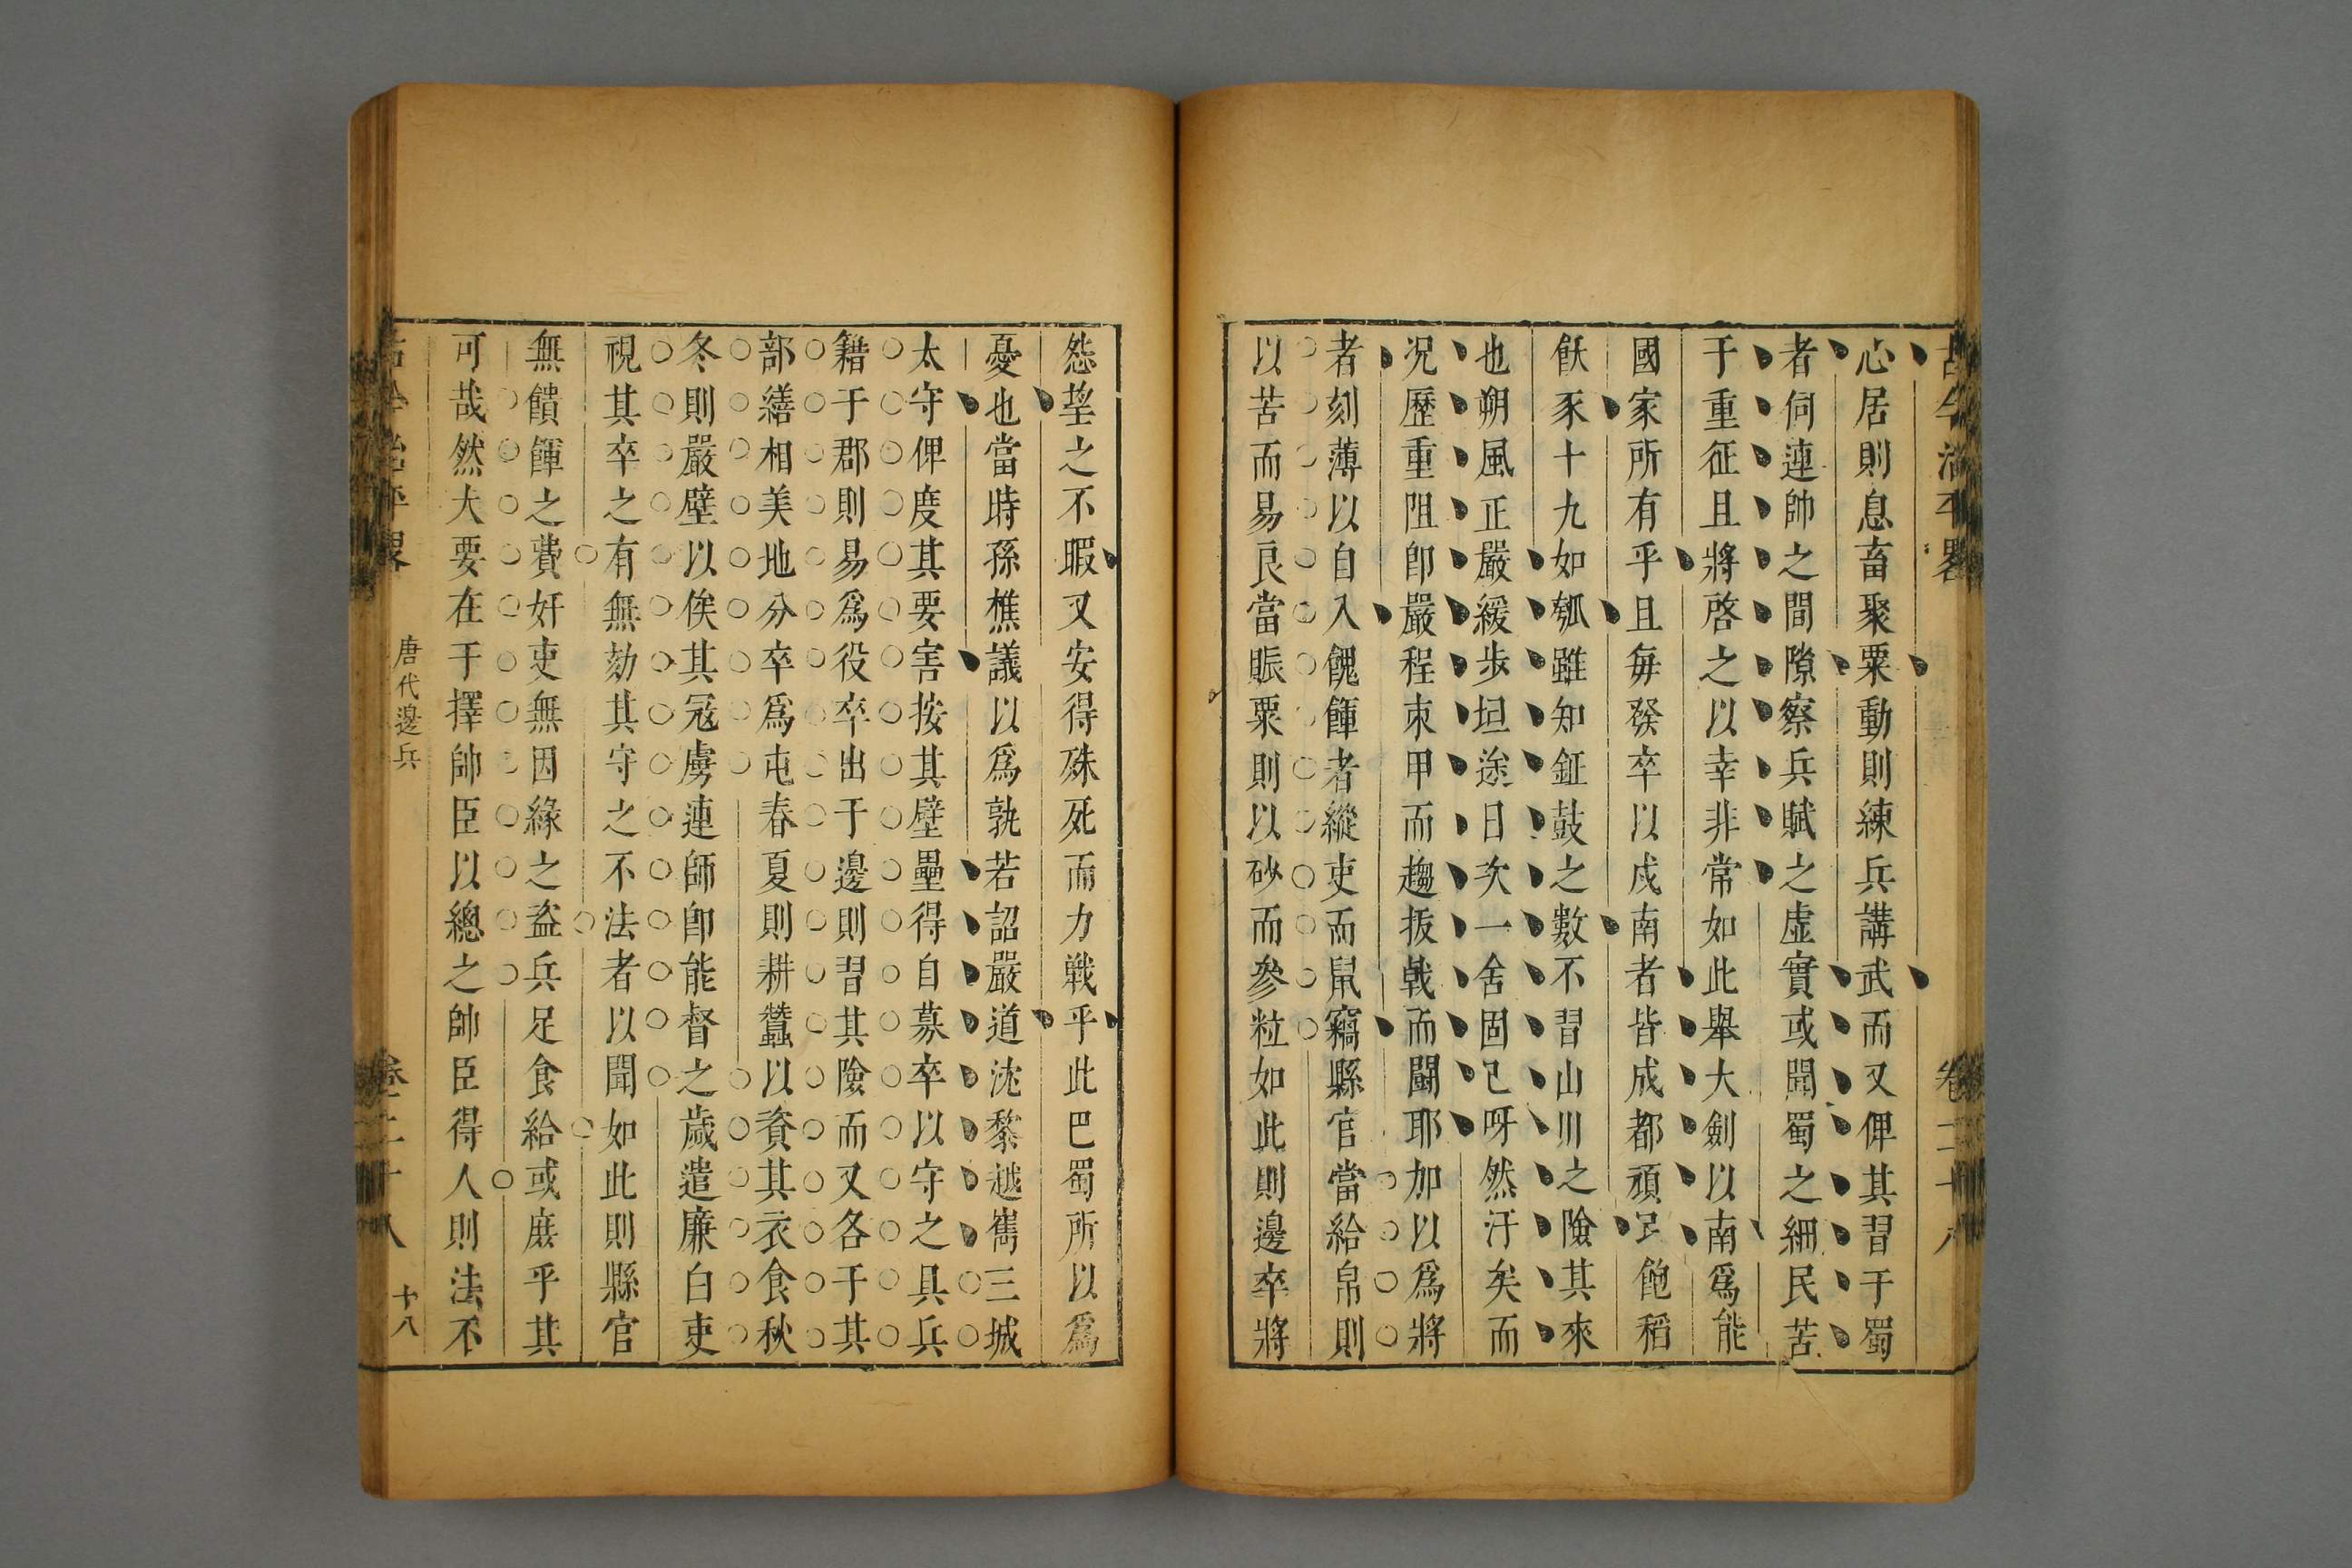 古今治平畧 卷二十八
心居則息畜聚粟動則練兵講武而又俾其習于蜀
者伺連帥之間隙察兵賦之虛實或聞蜀之細民苦
于重征且將啓之以幸非常如此舉大劍以南爲能
國家所有乎且每發卒以戍南者皆成都頑民飽稻
飫豕十九如瓠雖知鉦鼓之數不習山川之險其來
也朔風正嚴緩步坦途日次一舍固已呀然汗矣而
况歷重阻卽嚴程朿甲而趨扳戟而鬪耶加以爲將
者刻薄以自入餽餫者縱吏而鼠竊縣官當給帛則
以苦而易良當賑粟則以砂而參粒如此則邊卒將
怨望之不暇又安得殊死而力戰乎此巴蜀所以爲
憂也當時孫樵議以爲孰若詔嚴道沈黎越嶲三城
太守俾度其要害按其壁壘得自募卒以守之具兵
籍于郡則易爲役卒出于邊則習其險而又各于其
部繕相美地分卒爲屯春夏則耕蠶以資其衣食秋
冬則嚴壁以俟其冦虜連師卽能督之歲遣廉白吏
視其卒之有無劾其守之不法者以聞如此則縣官
無饋餫之費奸吏無因緣之盜兵足食給或庶乎其
可哉然大要在于擇帥臣以總之帥臣得人則法不
古今治平畧 唐代邊兵 卷二十八 十八